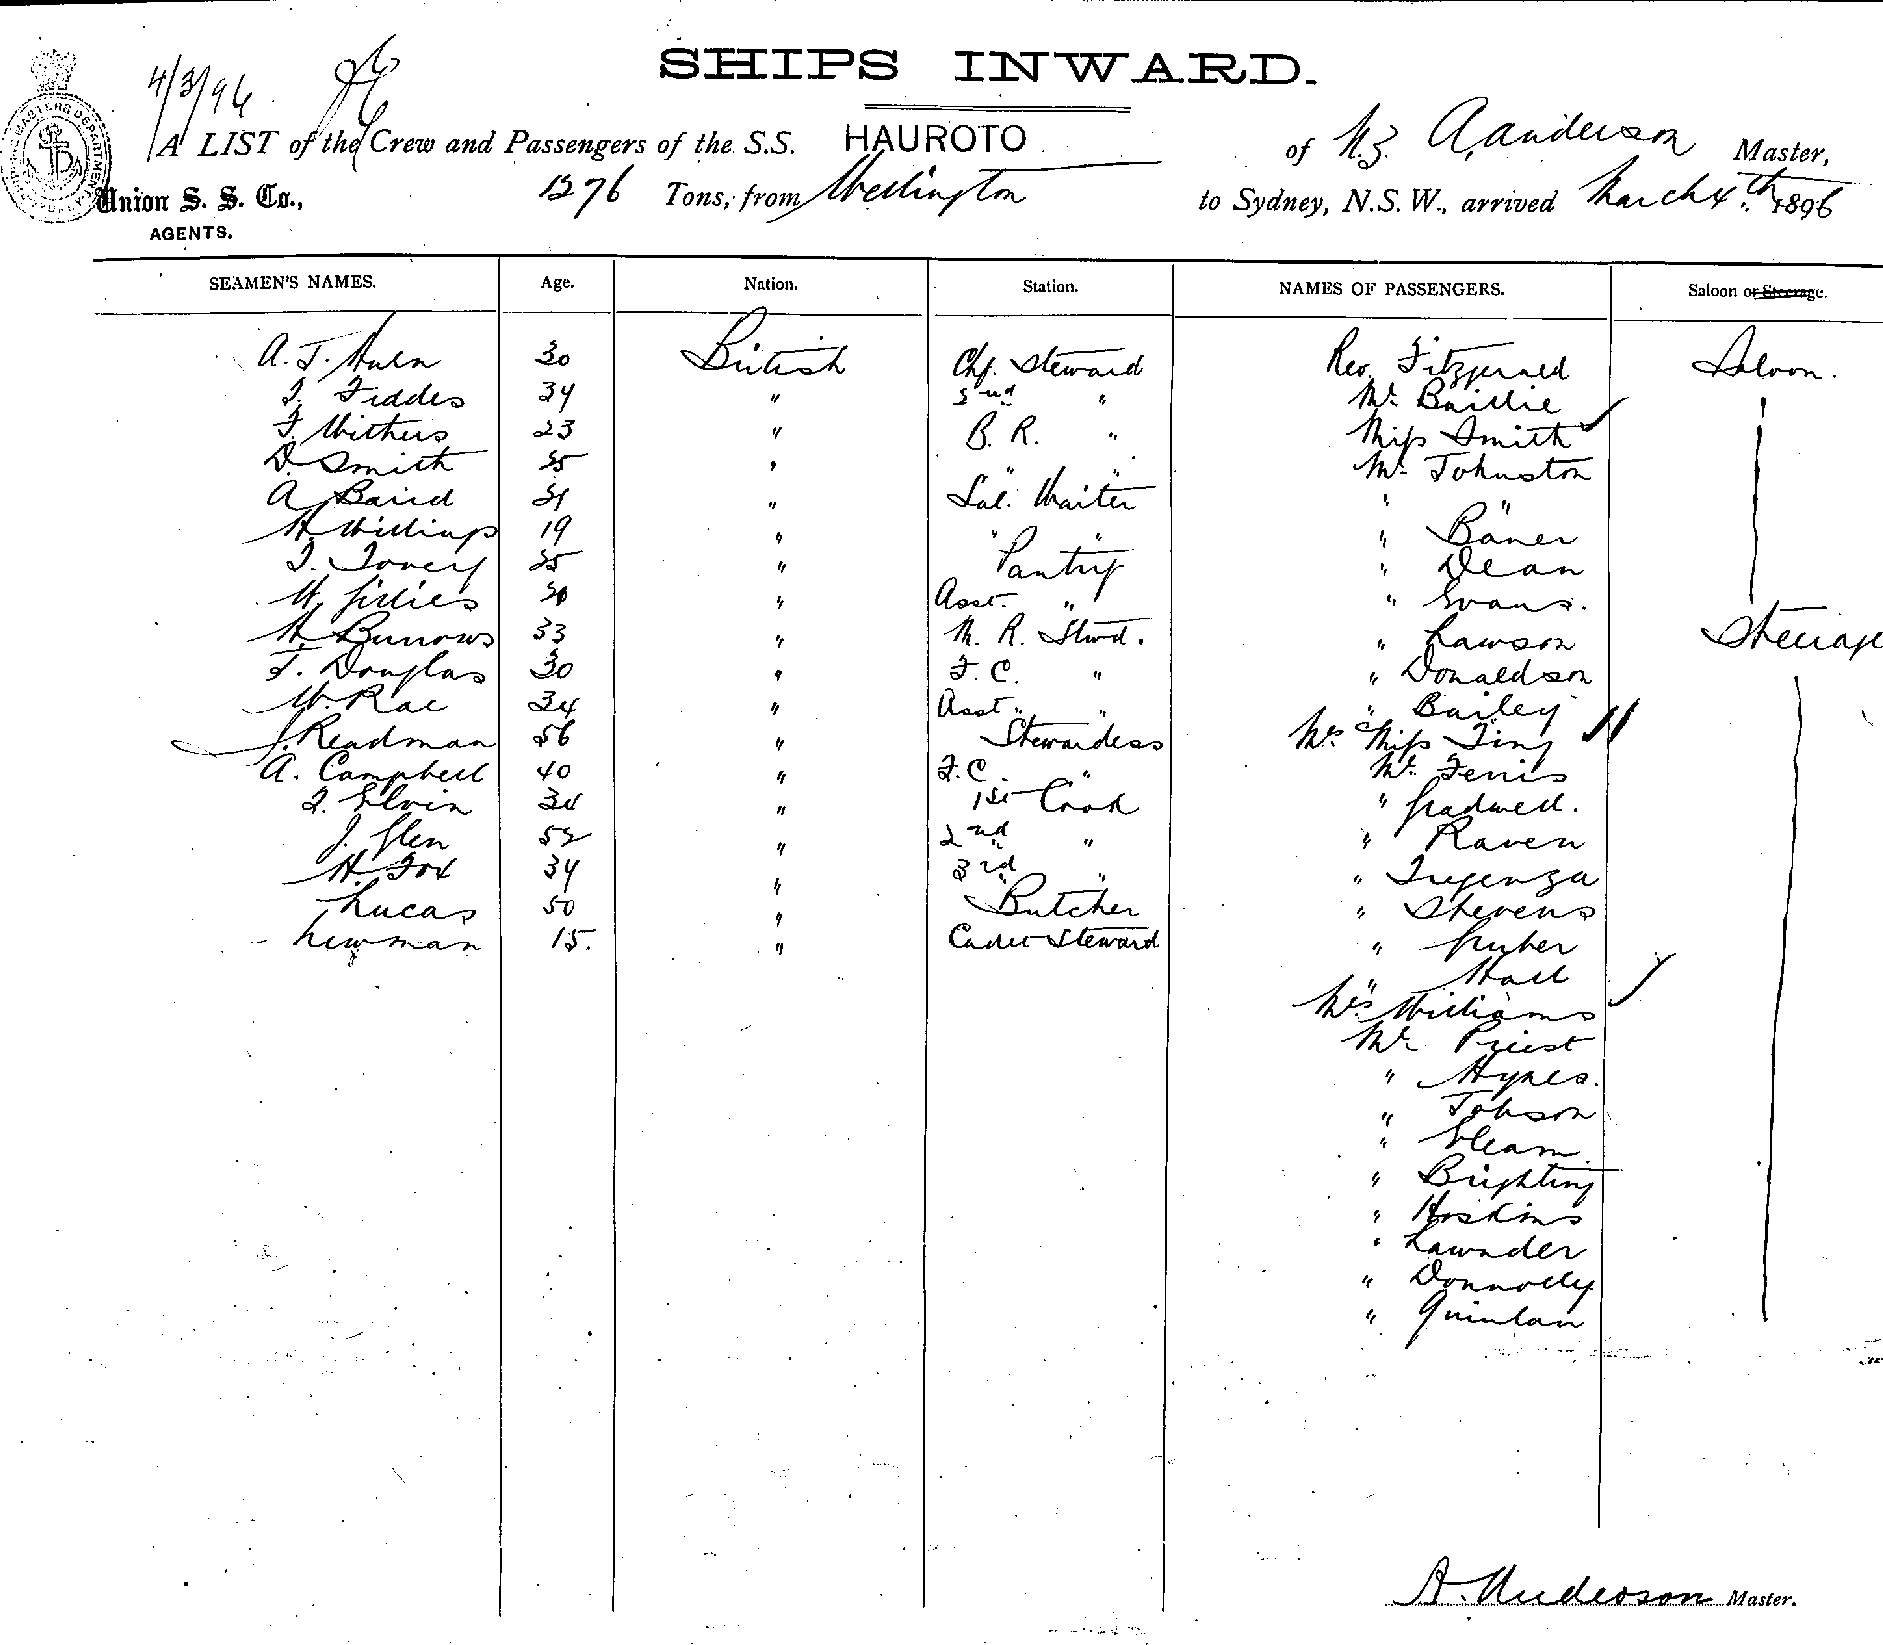 SHIPS INWARD.
4/3/96
A LIST of the Crew and Passengers of the S.S. HAUROTO of N.Z. A. Anderson Master,
Union S. S. Co., 1276 Tons, from Wellington to Sydney, N.S.W., arrived March 4th 1896
AGENTS.
SEAMEN'S NAMES. Age. Nation. Station. NAMES OF PASSENGERS. Saloon or Steerage.
A. J. 30 British Chf. Steward Rev. Fitzgerald Saloon.
Feddes 34 " 2nd " Mr. Baillie
F. Withers 23 " B. R. " Miss Smith
D. Smith 25 " " " Mr. Johnston
A. Baird 21 " Sal. Waiter " "
H. Willings 19 " " " " Baner
T. Tovey 25 " Pantry " Dean
W. Gillies 20 " Asst. " " Evans.
H. Burrows 33 " M. R. Stwd. " Lawson Steerage
F. Douglas 30 " F. C. " " Donaldson
W. Rae 34 " Asst " " " Bailey
J. Readman 56 " Stewardess Mrs & Miss Ting
A. Campbell 40 " F. C. " Mr. Ferris
Elvin 34 " 1st Cook " Gradwell.
J. Glen 52 " 2nd " " Raven
H. Fox 34 " 3rd " " Tregenza
Lucas 50 " Butcher " Stevens
Newman 15. " Cadet Steward " Gruber
" Hall
Mrs Williams
Mr. Priest
" Hynes.
" Jobson
" Gleam
" Brighting
" Hoskins
" Lawnder
" Donnolly
" Quinlan
A. Anderson Master.